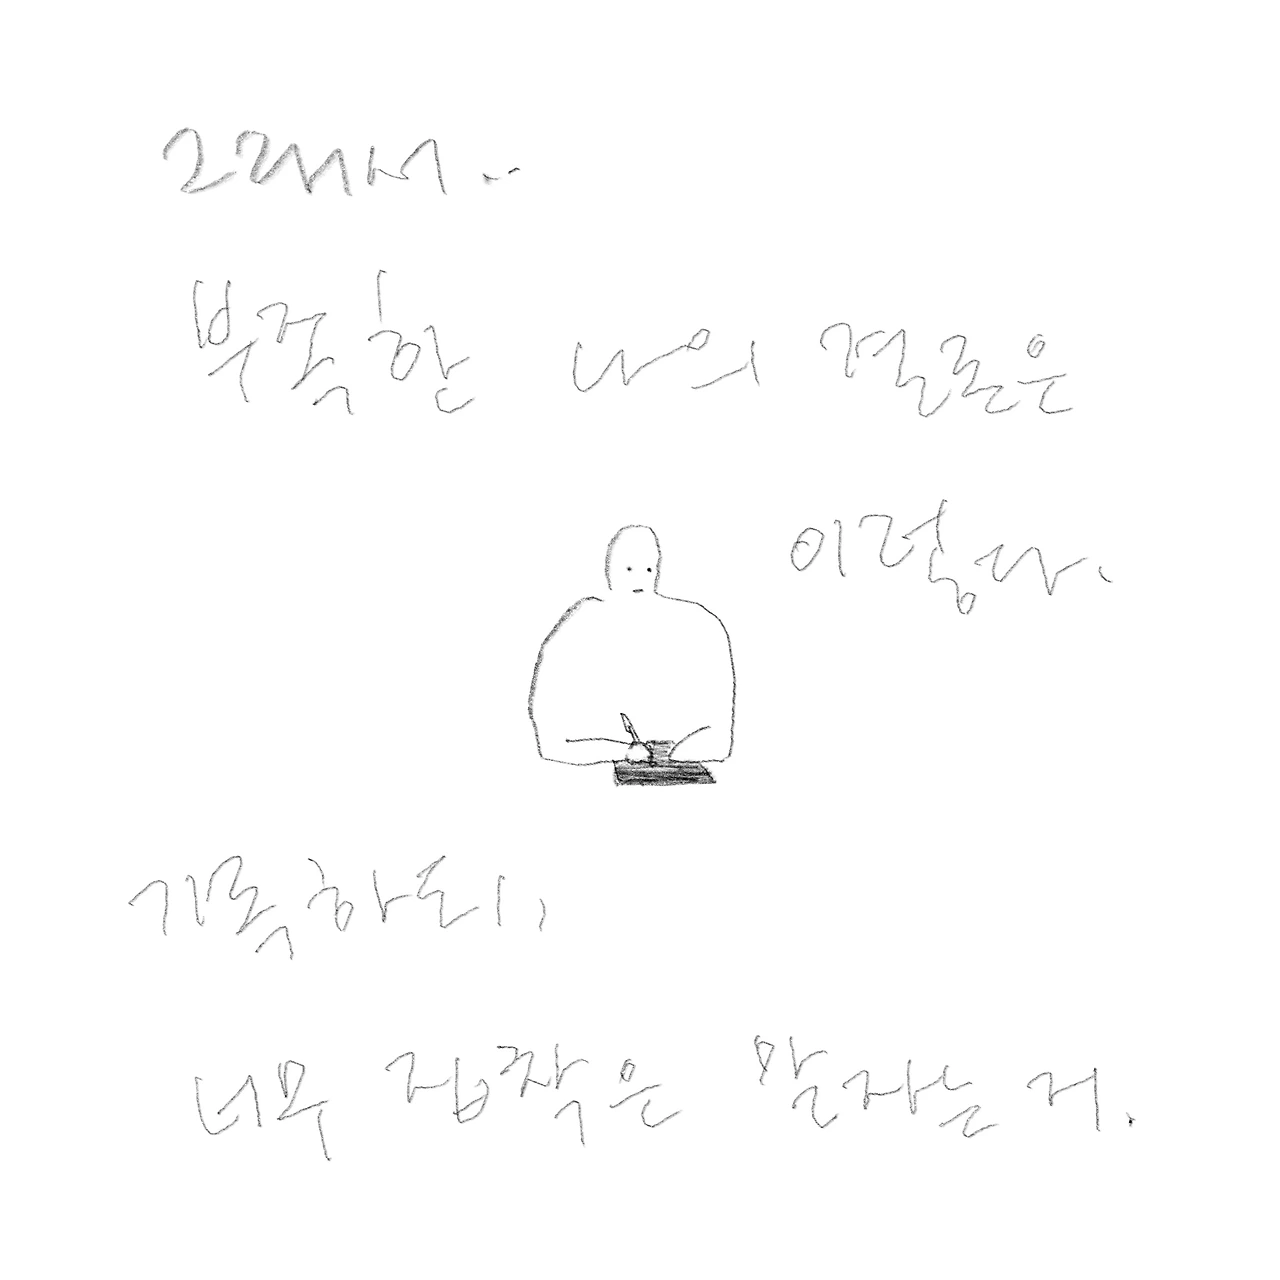 그래서..
부족한 나의 결론은
이렇다.
기록하되,
너무 집착은 말자는 거.